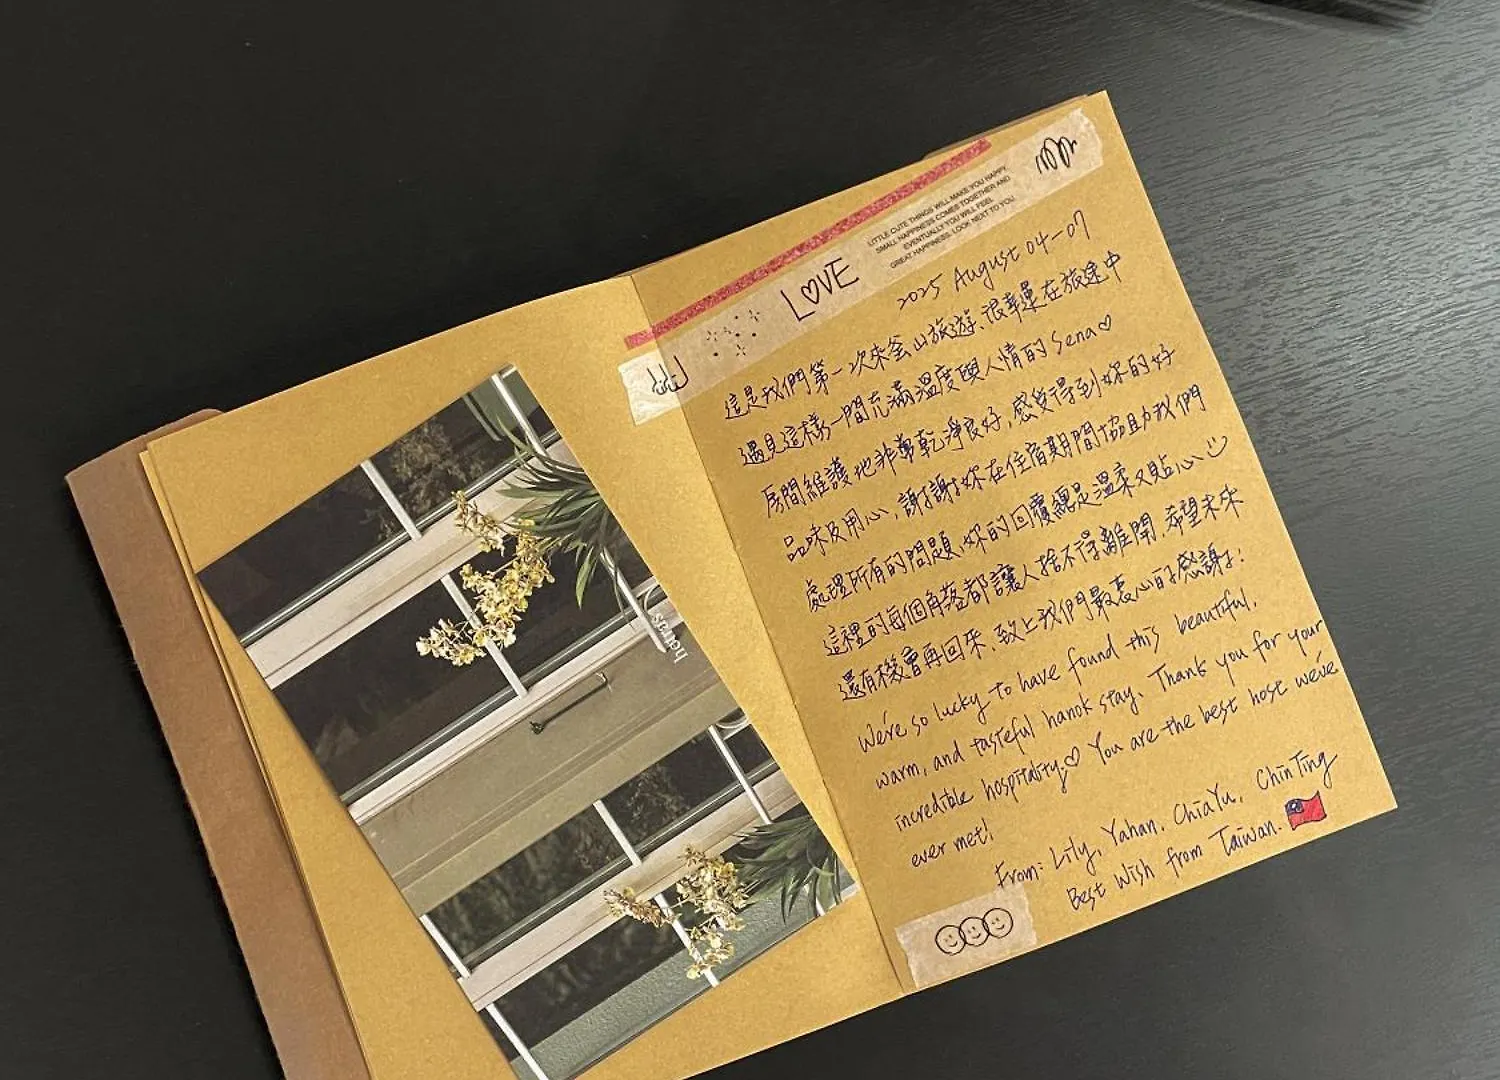 LITTLE CUTE THINGS WILL MAKE YOU HAPPY,
SMALL HAPPINESS COMES TOGETHER AND
EVENTUALLY YOU WILL FEEL
GREAT HAPPINESS. LOOK NEXT TO YOU.
LOVE
2025 August 04-07
這是我們第一次來釜山旅遊、很幸運在旅途中
遇見這樣一間充滿溫度與人情的 Sena♡
房間維護地非常乾淨良好, 感受得到妳的好
品味及用心, 謝謝妳在住宿期間協助我們
處理所有的問題、妳的回覆總是溫柔又貼心
這裡的每個角落都讓人捨不得離開、希望未來
還有機會再回來、致上我們最衷心的感謝!
We're so lucky to have found this beautiful,
warm, and tasteful hanok stay. Thank you for your
incredible hospitality♡ You are the best host we've
ever met!
From: Lily, Yahan, ChiaYu, ChinTing
Best Wish from Taiwan.